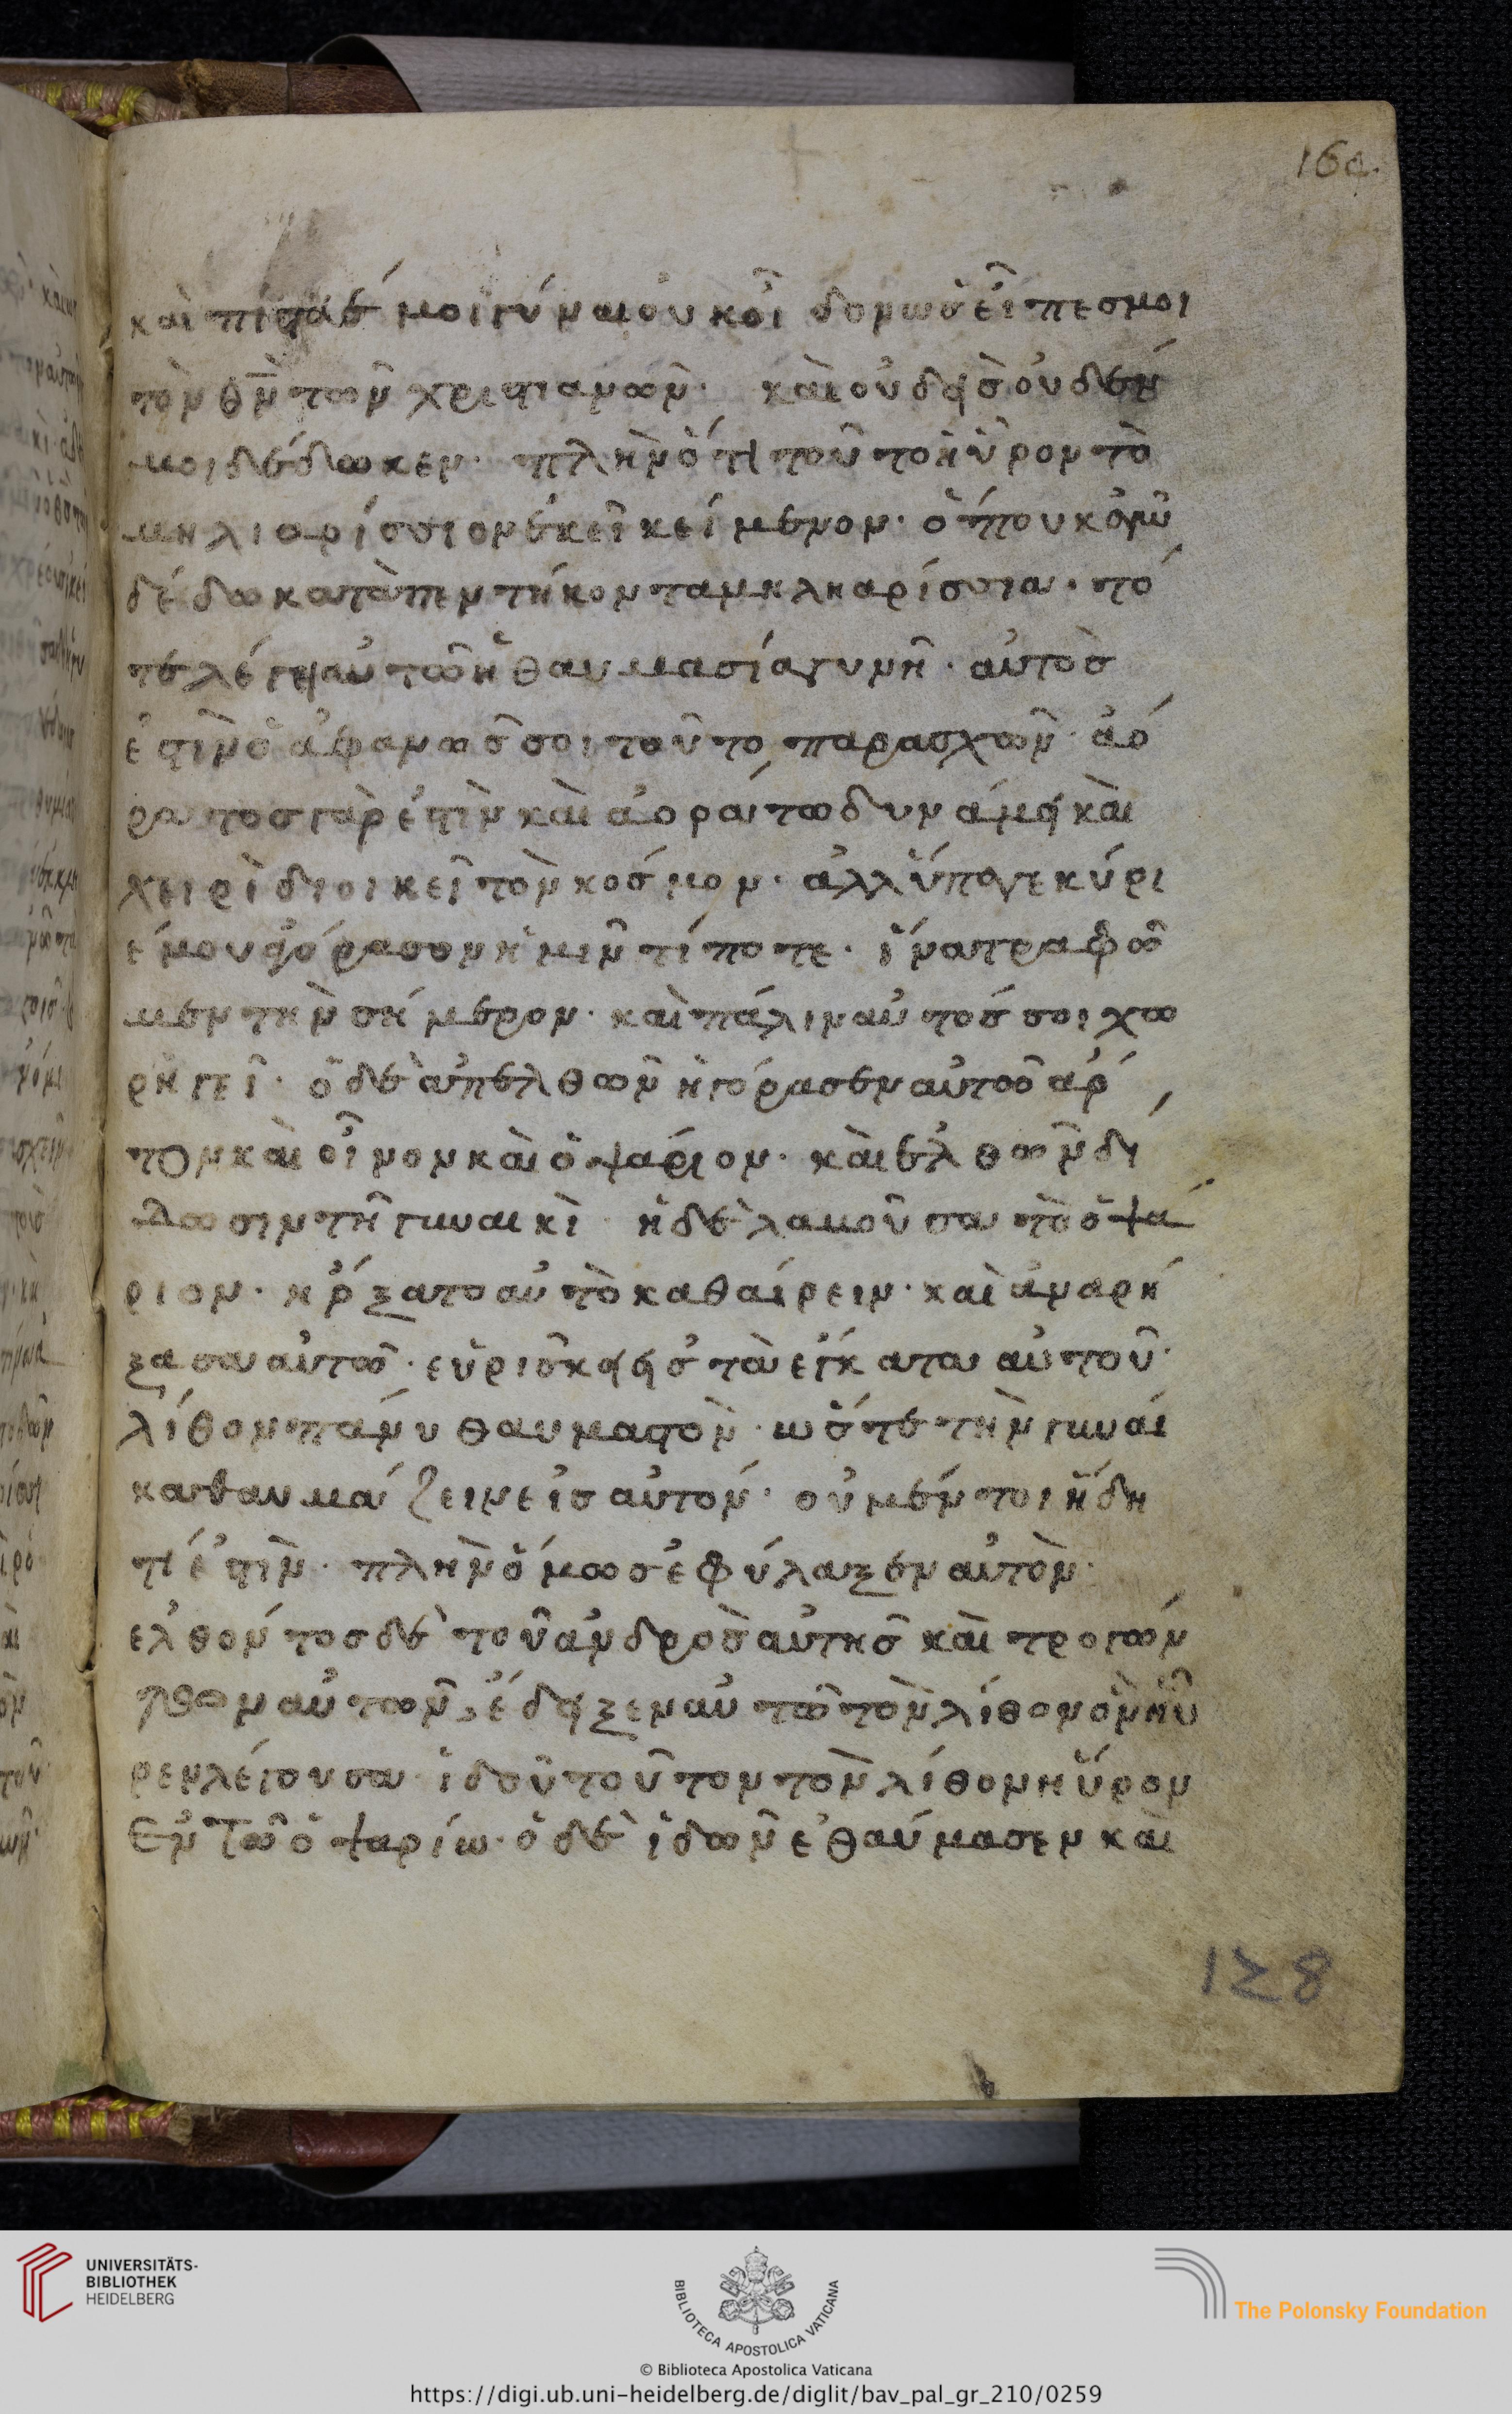 164.
καὶ πίστευέ μοι γύναι οὐκ οἶδον ὡς εἶπες μοι
τὸν θν̅ τῶν χριστιανῶν· καὶ οὐδεὶς οὐδέν
μοι δέδωκεν· πλὴν ὅτι τοῦτο ηὗρον τὸ
μηλιαρίσσιον ἐκεῖ κείμενον· ὅπου κἀγὼ
δέδωκα τὰ πεντήκοντα μηλιαρίσσια· τό
τε λέγει αὐτῶ ἡ θαυμασία γυνὴ· αὐτὸς
ἐστὶν ὁ ἀφανῶς σοι τοῦτο παρασχῶν· ἀό
ρατος γὰρ ἐστὶν καὶ ἀοράτω δυνάμει καὶ
χειρὶ διοικεῖ τὸν κόσμον· ἀλλ ὕπαγε κύρι
έ μου ἀγόρασον ἡμῖν τί ποτε· ἵνα τραφῶ
μεν τὴν σήμερον· καὶ πάλιν αὐτός σοι χω
ρηγεῖ· ὁ δὲ ἀπελθῶν ἠγόρασεν αὐτοῦ ἄρ
τον καὶ οἶνον καὶ ὀψάριον· καὶ ἐλθῶν δί
δωσιν τῆ γυναικὶ· ἡ δὲ λαβοῦσα τὸ ὀψά
ριον· ἤρξατο αὐτὸ καθαίρειν· καὶ ἀναρή
ξασα αὐτῶ· εὑρίσκει εἰς τὰ ἔγκατα αὐτοῦ·
λίθον πάνυ θαυμαστὸν· ὥστε τὴν γυναί
κα θαυμάζειν εἰς αὐτόν· οὐ μέντοι ἤδη
τί ἐστὶν· πλὴν ὅμως ἐφύλαξεν αὐτὸν·
ἐλθόντος δὲ τοῦ ἀνδρὸς αὐτῆς καὶ τρογόν
των αὐτῶν, ἔδειξεν αὐτῶ τὸν λίθον ὃν ηὗ
ρεν λέγουσα· ἰδοῦ τοῦτον τὸν λίθον ηὗρον
ἐν τῶ ὀψαρίω· ὁ δὲ ἰδῶν ἐθαύμασεν καὶ
128
UNIVERSITÄTS-
BIBLIOTHEK
HEIDELBERG
BIBLIOTECA APOSTOLICA VATICANA
The Polonsky Foundation
© Biblioteca Apostolica Vaticana
https://digi.ub.uni-heidelberg.de/diglit/bav_pal_gr_210/0259